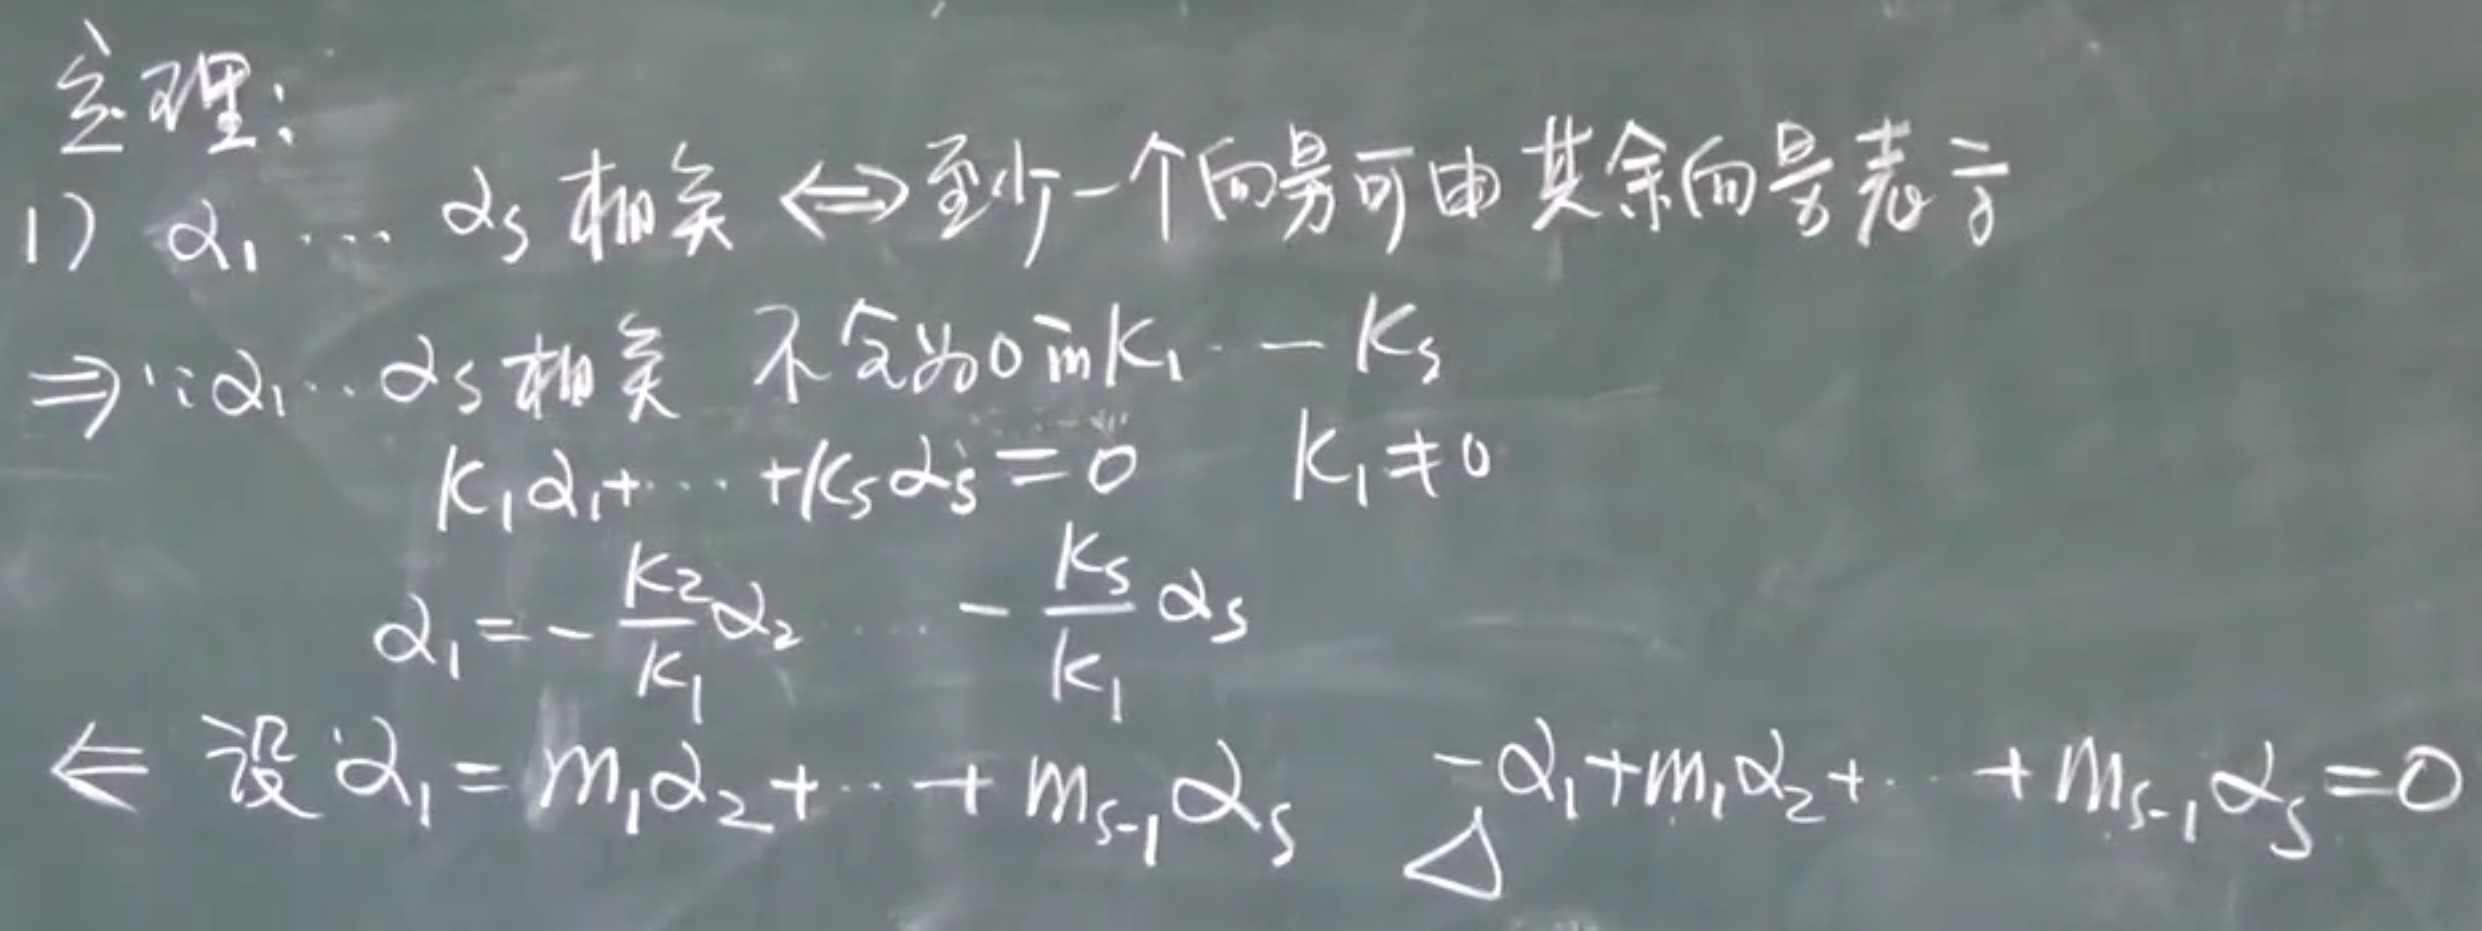 定理:
1) α₁ … αₛ 相关 ⇔ 至少一个向量可由其余向量表示
⇒ ∵ α₁ … αₛ 相关 不全为0的 K₁ … Kₛ
K₁α₁+ … +Kₛαₛ=0 K₁≠0
α₁=-K₂/K₁ α₂ … -Kₛ/K₁ αₛ
⇐ 设 α₁=m₁α₂+ … +mₛ₋₁αₛ -α₁+m₁α₂+ … +mₛ₋₁αₛ=0
△